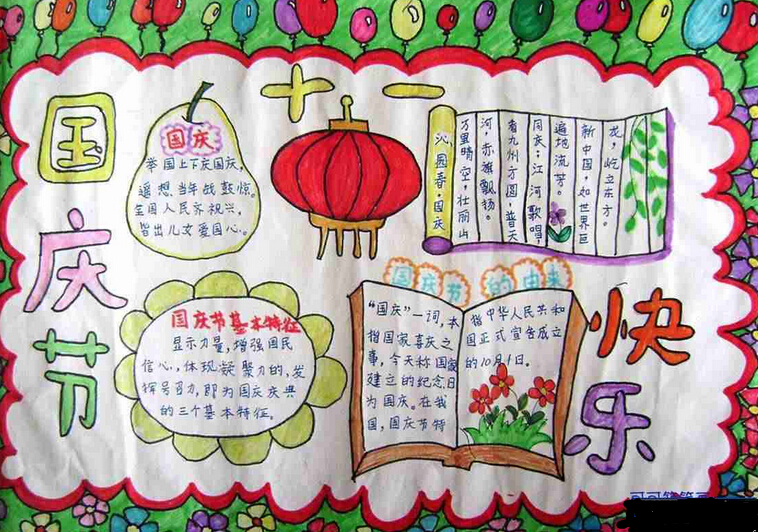 国庆节
十一
快乐
国庆
举国上下庆国庆，
遥想当年战鼓惊。
全国人民齐祝兴，
皆出儿女爱国心。
沁园春·国庆
万里晴空，壮丽山
河，赤旗飘扬。
看九州方圆，普天
同庆；江河歌唱，
遍地流芳。
新中国，如世界巨
龙，屹立东方。
国庆节基本特征
显示力量，增强国民
信心，体现凝聚力的，发
挥号召力，即为国庆庆典
的三个基本特征。
国庆节的由来
“国庆”一词，本
指国家喜庆之
事，今天称国家
建立的纪念日
为国庆。在我
国，国庆节特
指中华人民共和
国正式宣告成立
的10月1日。